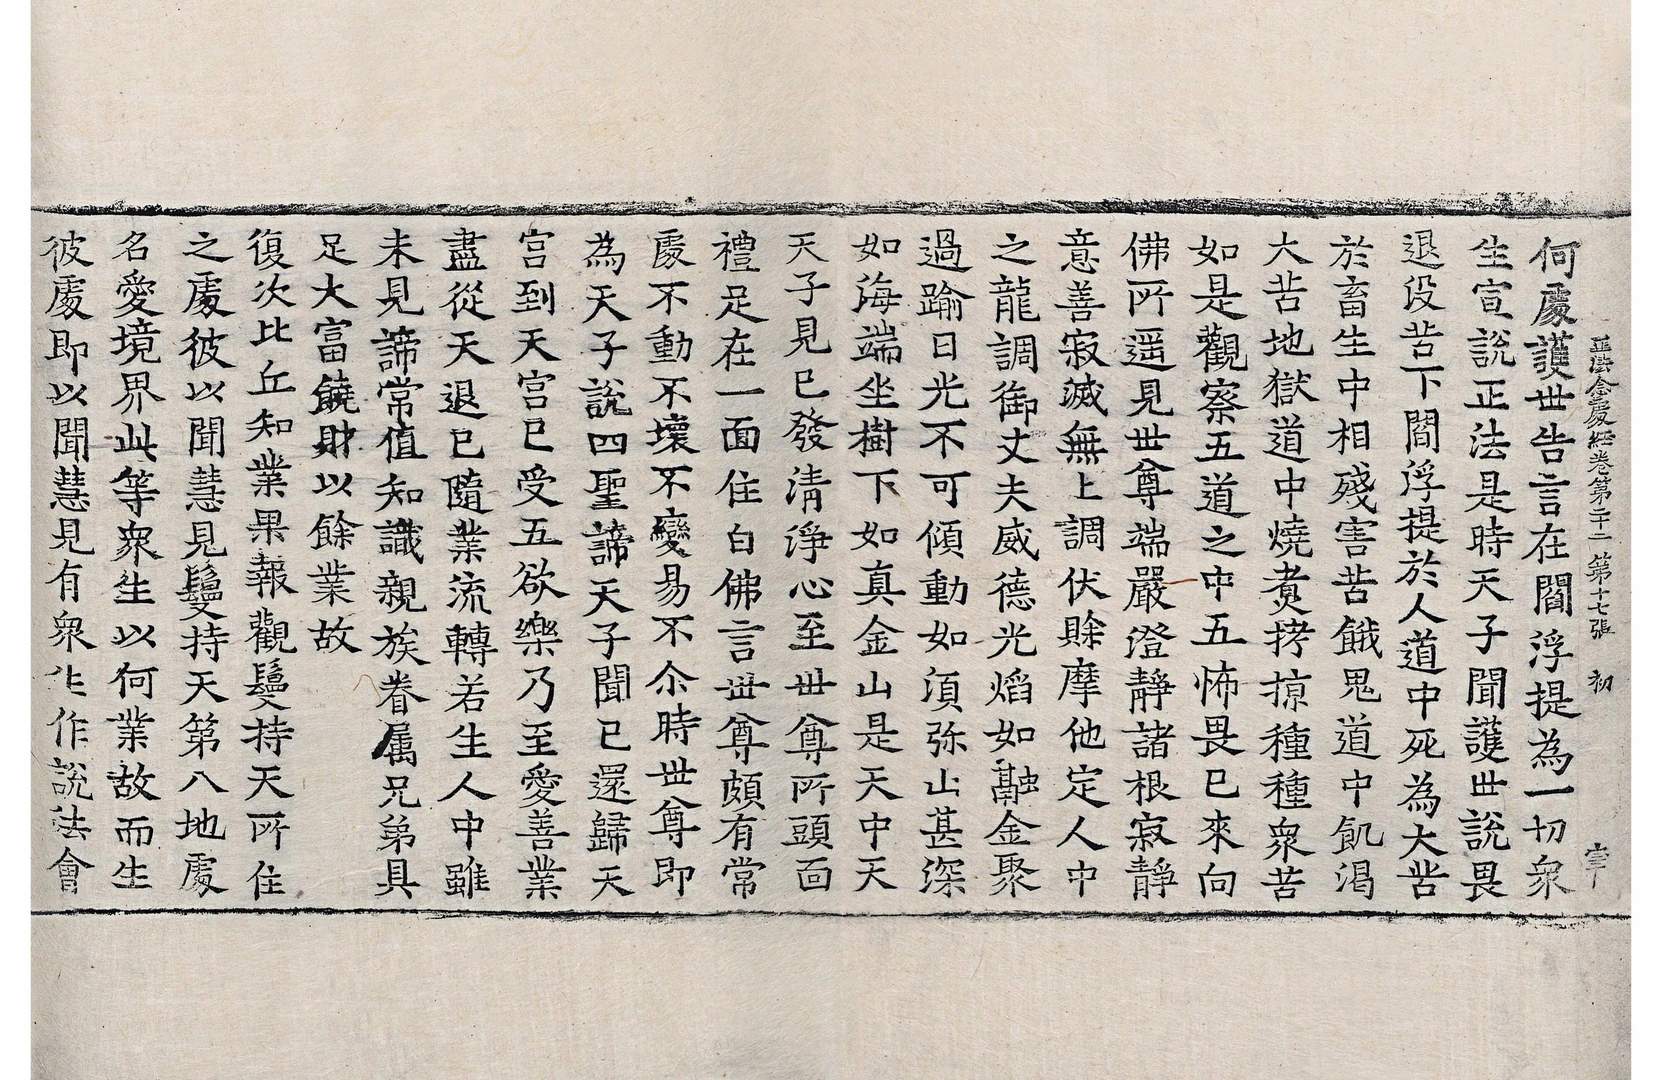 正法念處經卷第二十二 第十七張 初
何處護世告言在閻浮提為一切眾
生宣說正法是時天子聞護世說畏
退沒苦下閻浮提於人道中死為大苦
於畜生中相殘害苦餓鬼道中飢渴
大苦地獄道中燒煑拷掠種種眾苦
如是觀察五道之中五怖畏已來向
佛所遥見世尊端嚴澄靜諸根寂靜
意善寂滅無上調伏賖摩他定人中
之龍調御丈夫威德光焰如融金聚
過踰日光不可傾動如須弥山甚深
如海端坐樹下如真金山是天中天
天子見已發清淨心至世尊所頭面
禮足在一面住白佛言世尊頗有常
處不動不壞不變易不尒時世尊即
為天子說四聖諦天子聞已還歸天
宮到天宮已受五欲樂乃至愛善業
盡從天退已隨業流轉若生人中雖
未見諦常值知識親族眷属兄弟具
足大富饒財以餘業故
復次比丘知業果報觀鬘持天所住
之處彼以聞慧見鬘持天第八地處
名愛境界此等眾生以何業故而生
彼處即以聞慧見有眾生作說法會